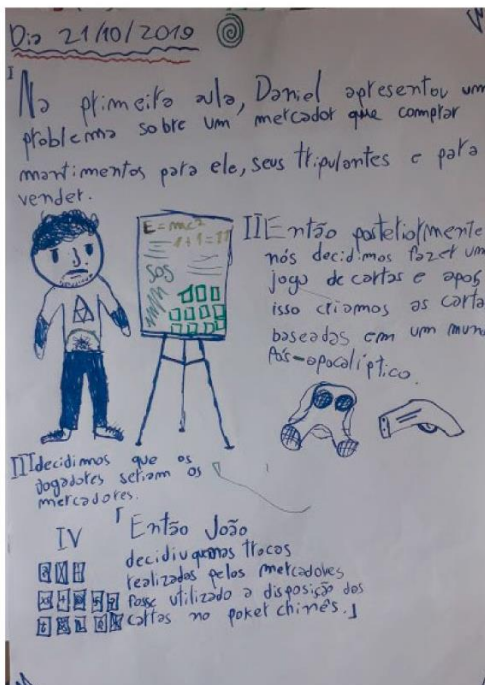 Dia 21/10/2019
I
Na primeira aula, Daniel apresentou um
problema sobre um mercador que comprar
mantimentos para ele, seus tripulantes e para
vender.
E=mc²
1+1=11
SOS
II Então posteriormente
nós decidimos fazer um
jogo de cartas e após
isso criamos as carta
baseadas em um mun
Pós-apocalíptico.
III decidimos que os
Jogadores seriam os
mercadores.
IV
「Então João
decidiu que nas trocas
realizadas pelos mercadores
fosse utilizado a disposição das
cartas no poker chinês.」